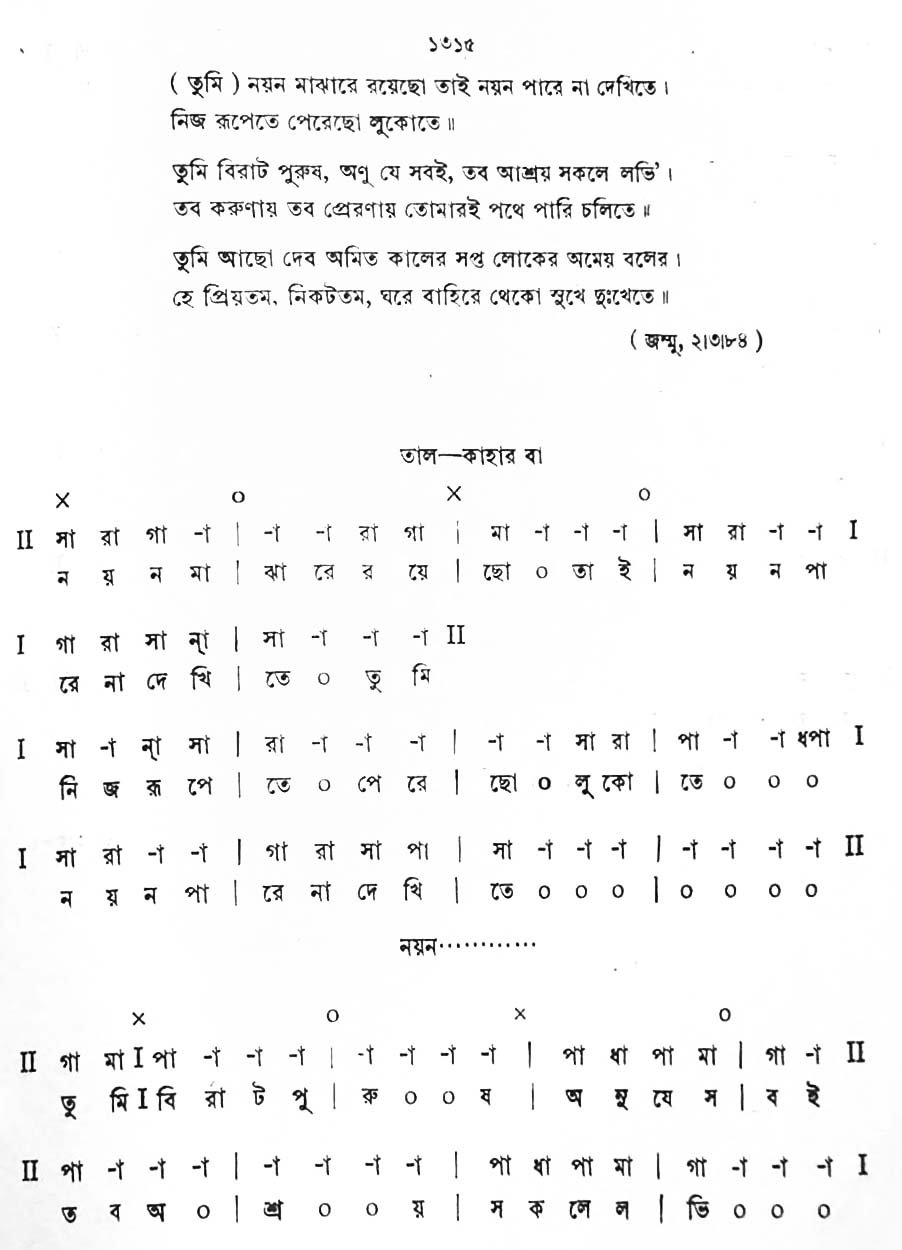 ১৩১৫
( তুমি ) নয়ন মাঝারে রয়েছো তাই নয়ন পারে না দেখিতে।
নিজ রূপেতে পেরেছো লুকোতে॥
তুমি বিরাট পুরুষ, অণু যে সবই, তব আশ্রয় সকলে লভি'।
তব করুণায় তব প্রেরণায় তোমারই পথে পারি চলিতে॥
তুমি আছো দেব অমিত কালের সপ্ত লোকের অমেয় বলের।
হে প্রিয়তম, নিকটতম, ঘরে বাহিরে থেকো সুখে দুঃখেতে॥
( জম্মু, ২।৩।৮৪ )
তাল—কাহার বা
× o × o
II সা রা গা -া | -া -া রা গা | মা -া -া -া | সা রা -া -া I
ন য় ন মা | ঝা রে র য়ে | ছো o তা ই | ন য় ন পা
I গা রা সা ন্া | সা -া -া -া II
রে না দে খি | তে o তু মি
I সা -া ন্া সা | রা -া -া -া | -া -া সা রা | পা -া -া ধপা I
নি জ রূ পে | তে o পে রে | ছো o লু কো | তে o o o
I সা রা -া -া | গা রা সা পা | সা -া -া -া | -া -া -া -া II
ন য় ন পা | রে না দে খি | তে o o o | o o o o
নয়ন············
× o × o
II গা মা I পা -া -া -া | -া -া -া -া | পা ধা পা মা | গা -া II
তু মি I বি রা ট পু | রু o o ষ | অ ণু যে স | ব ই
II পা -া -া -া | -া -া -া -া | পা ধা পা মা | গা -া -া -া I
ত ব অ o | শ্র o o য় | স ক লে ল | ভি o o o